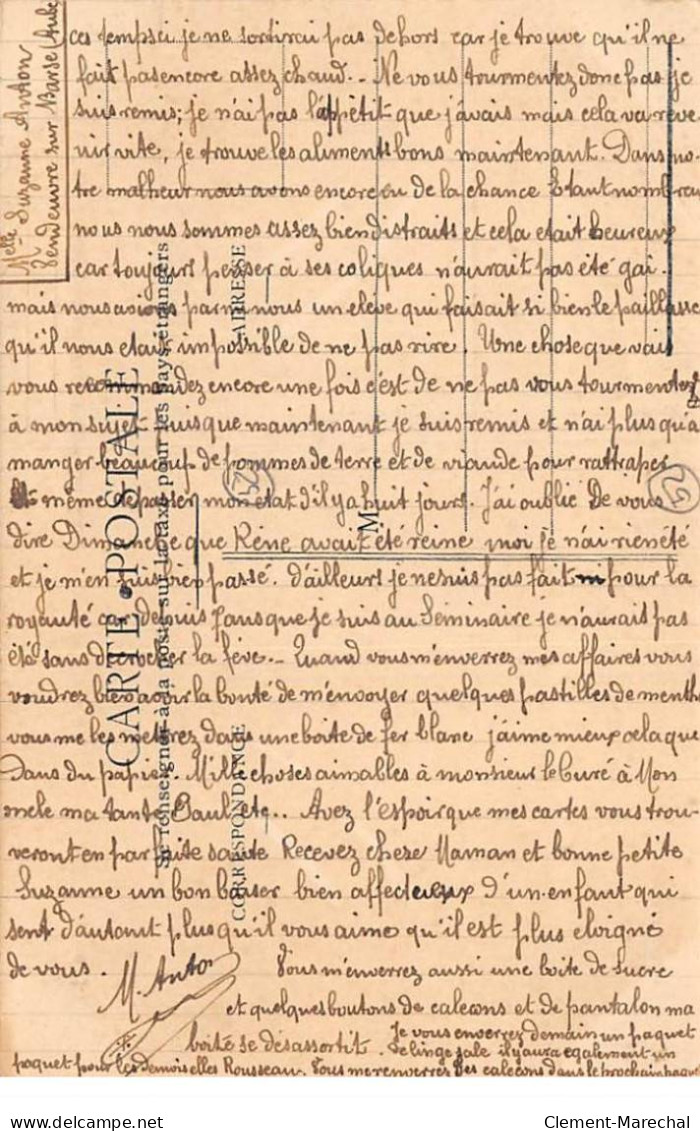 Melle Suzanne Anton
Vendeuvre sur Barse Aube
ces tempsci je ne sortirai pas dehors car je trouve qu'il ne
fait pas encore assez chaud. - Ne vous tourmentez donc pas je
suis remis; je n'ai pas l'appétit que j'avais mais cela va reve-
nir vite, je trouve les aliments bons maintenant. Dans no-
tre malheur nous avons encore eu de la chance Etant nombreux
nous nous sommes assez bien distraits et cela etait heureux
car toujours penser à ses coliques n'aurait pas été gai.
mais nous avions parmi nous un eleve qui faisait si bien le paillasse
qu'il nous etait impossible de ne pas rire. Une chose que vais
vous recommandez encore une fois c'est de ne pas vous tourmentez
à mon sujet puisque maintenant je suis remis et n'ai plus qu'à
manger beaucoup de pommes de terre et de viande pour rattraper
et même dépasser mon état d'il y a huit jours. J'ai oublié de vous
dire Dimanche que Réne avait été reine moi je n'ai rien été
et je m'en suis bien passé. d'ailleurs je ne suis pas fait pour la
royauté car depuis 7 ans que je suis au Séminaire je n'aurais pas
été sans décrocher la fève. - Quand vous m'enverrez mes affaires vous
voudrez bien avoir la bonté de m'envoyer quelques pastilles de menthe
vous me les mettrez dans une boite de fer blanc j'aime mieux cela que
dans du papier. Mille choses aimables à monsieur le Curé à Mon
oncle ma tante Paul etc.. Avez l'espoir que mes cartes vous trou-
veront en parfaite santé Recevez chere Maman et bonne petite
Suzanne un bon baiser bien affectueux d'un enfant qui
sent d'autant plus qu'il vous aime qu'il est plus eloigné
de vous. M. Anton
Vous m'enverrez aussi une boite de sucre
et quelques boutons de calecons et de pantalon ma
boite se désassortit. Je vous enverrez demain un paquet
de linge sale il y aura egalement un
paquet pour les demoiselles Rousseau. Vous me renverrez des calecons dans le prochain paquet
CARTE POSTALE
Se renseigner à la poste sur la taxe pour les pays étrangers
CORRESPONDANCE
ADRESSE
M
Clement-Marechal